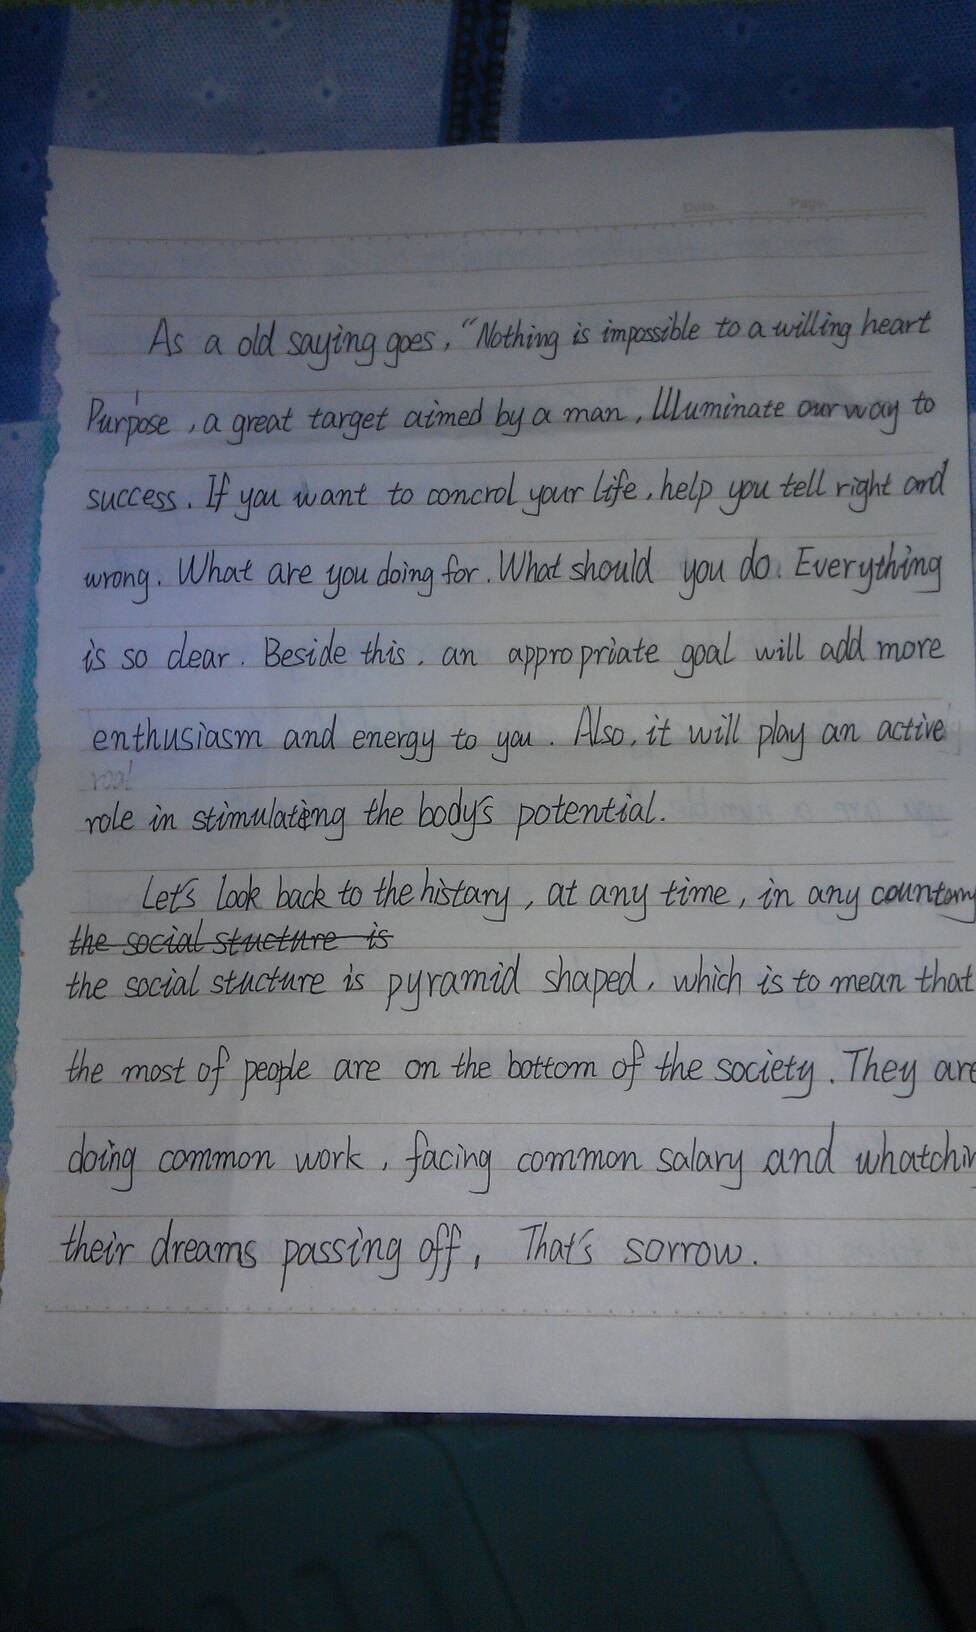 Date. Page.
As a old saying goes, "Nothing is impossible to a willing heart
Purpose, a great target aimed by a man, Illuminate our way to
success. If you want to concrol your life, help you tell right and
wrong. What are you doing for. What should you do. Everything
is so clear. Beside this, an appropriate goal will add more
enthusiasm and energy to you. Also, it will play an active
roal
role in stimulating the body's potential.
Let's look back to the histary, at any time, in any
the social stucture is
the social stucture is pyramid shaped, which is to mean that
the most of people are on the bottom of the society. They are
doing common work, facing common salary and whatchin
their dreams passing off, That's sorrow.